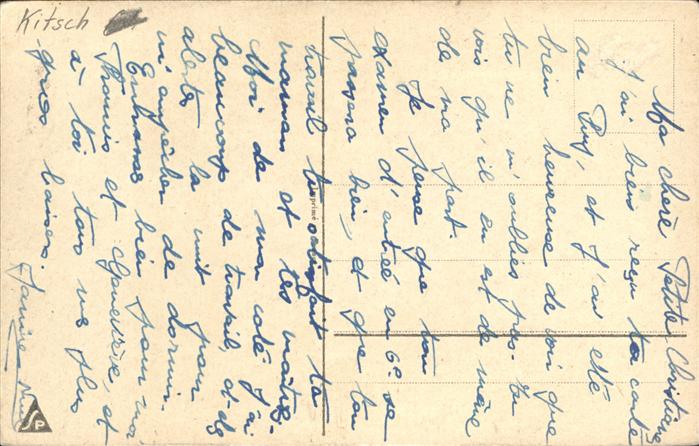 Kitsch
Ma chère Petite Christiane
J'ai bien reçu ta carte
au Puy, et j'ai été
bien heureuse de voir que
tu ne m'oublies pas. Tu
vois qu'il en est de même
de ma part.
Je pense que ton
examen d'entrée en 6e se
passera bien, et que ton
travail satisfait ta
maman et tes maîtres.
Moi de mon coté j'ai
beaucoup de travail, et de
alertes la nuit pour
m'empêcher de dormir.
Embrasse bien pour moi
Francis et Geneviève, et
à toi tous mes plus
gros baisers.
Janine
Imprimé